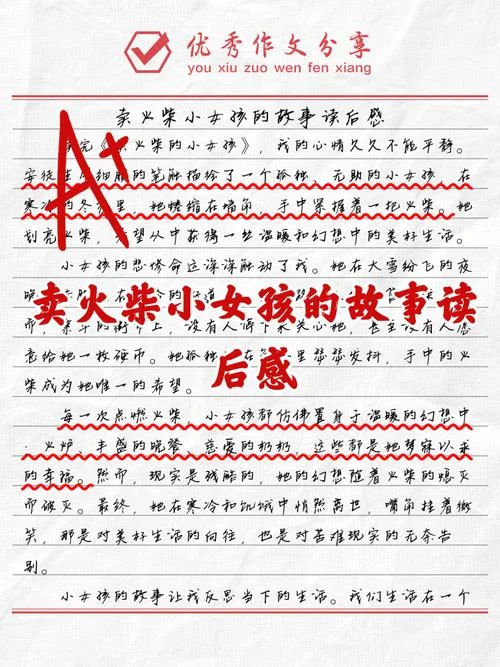 优秀作文分享
you xiu zuo wen fen xiang
A+
卖火柴小女孩的故事读后感
完《 火柴的小女孩》,我的心情久久不能平静。
安徒生 细腻的笔触描绘了一个孤独、无助的小女孩,在
寒冷的冬 里,她蜷缩在墙角,手中紧握着一把火柴。她
划亮火柴, 望从中获得一丝温暖和幻想中的美好生活。
小女孩的悲惨命运深深触动了我。她在大雪纷飞的夜
卖火柴小女孩的故事读
后感
而, 没有人停下来关心她,甚至没有人愿
意给她一枚硬币。她孤独 里瑟瑟发抖,手中的火
柴成为她唯一的希望。
每一次点燃火柴,小女孩都仿佛置身于温暖的幻想中
:火炉、丰盛的晚餐、慈爱的奶奶,这些都是她梦寐以求
的幸福。然而,现实是残酷的,她的幻想随着火柴的熄灭
而破灭。最终,她在寒冷和饥饿中悄然离世,嘴角挂着微
笑,那是对美好生活的向往,也是对苦难现实的无奈告
别。
小女孩的故事让我反思当下的生活。我们生活在一个